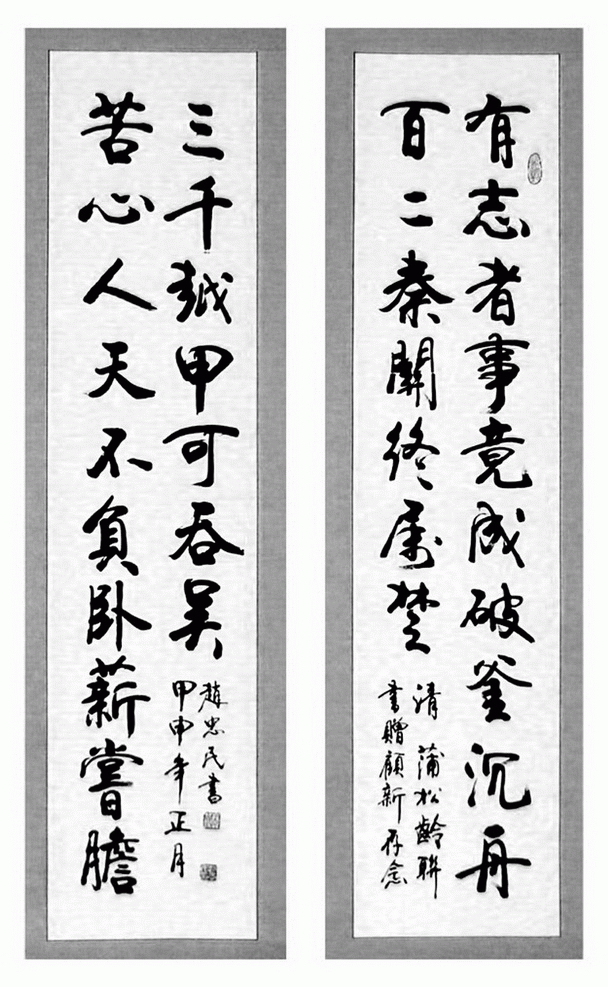 有志者事竟成破釜沉舟
百二秦關終属楚
清 蒲松齡聯
書贈顧新存念
苦心人天不負卧薪嘗膽
三千越甲可吞吴
趙忠民書
甲申年正月